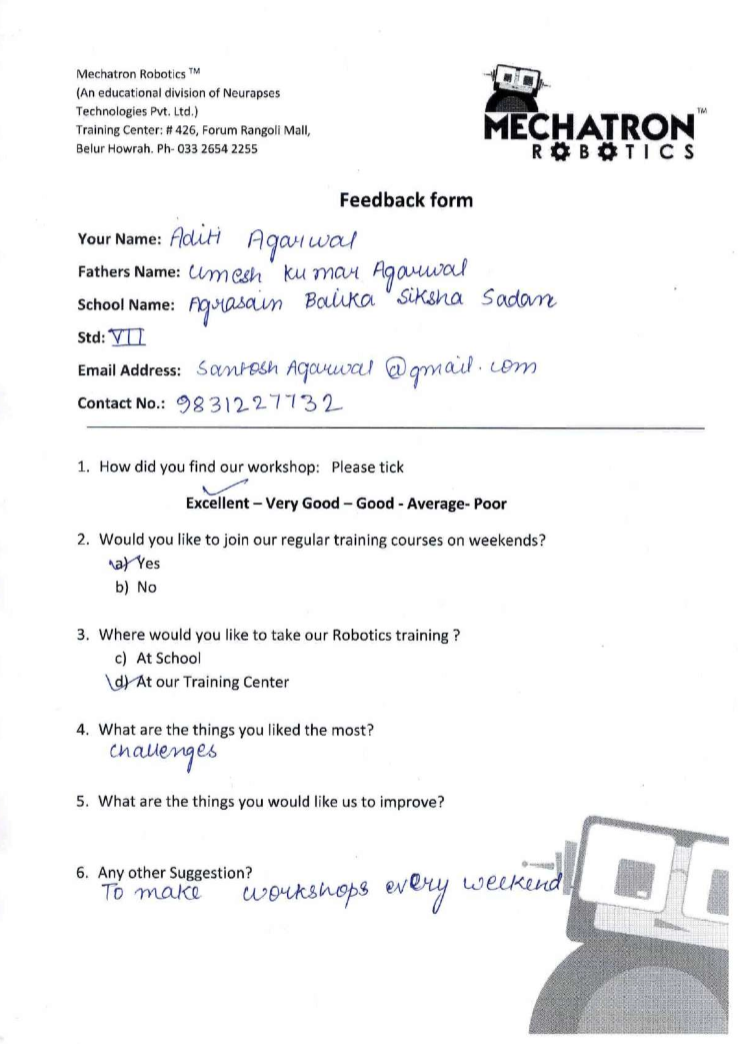 Mechatron Robotics ™
(An educational division of Neurapses
Technologies Pvt. Ltd.)
Training Center: # 426, Forum Rangoli Mall,
Belur Howrah. Ph- 033 2654 2255
MECHATRON ™
ROBOTICS
Feedback form
Your Name: Aditi Agarwal
Fathers Name: Umesh Kumar Agarwal
School Name: Agrasain Balika Siksha Sadan
Std: VII
Email Address: Santosh Agarwal @gmail.com
Contact No.: 9831227732
1. How did you find our workshop: Please tick
Excellent – Very Good – Good - Average- Poor
2. Would you like to join our regular training courses on weekends?
a) Yes
b) No
3. Where would you like to take our Robotics training ?
c) At School
d) At our Training Center
4. What are the things you liked the most?
challenges
5. What are the things you would like us to improve?
6. Any other Suggestion?
To make workshops every weekend